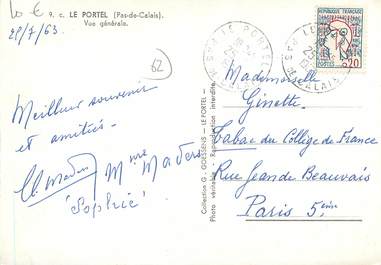 10 €
9. c. LE PORTEL (Pas-de-Calais).
Vue générale.
25/7/63
62
Meilleur souvenir
et amitiés.
Mme Madere
"Sophie"
Collection G. GOESSENS - LE PORTEL -
Photo véritable - Reproduction interdite.
LE PORTEL
PAS DE CALAIS
REPUBLIQUE FRANCAISE
POSTES
0,20
Mademoiselle
Ginette
Tabac du Collège de France
Rue Jean de Beauvais
Paris 5ème